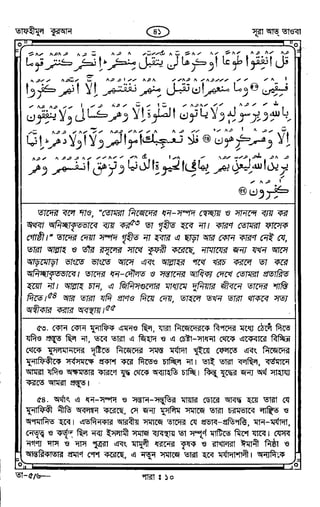 তাফহীমুল কুরআন
৪১
সূরা আত্ তাওবা
قُلْ أَنْفِقُوا طَوْعًا أَوْ كَرْهًا لَّنْ يُّتَقَبَّلَ مِنْكُمْ ۖ إِنَّكُمْ كُنْتُمْ قَوْمًا
فٰسِقِيْنَ ﴿۵۳﴾ وَمَا مَنَعَهُمْ أَنْ تُقْبَلَ مِنْهُمْ نَفَقٰتُهُمْ إِلَّا أَنَّهُمْ كَفَرُوا
بِاللّٰهِ وَبِرَسُوْلِهٖ وَلَا يَأْتُوْنَ الصَّلٰوةَ إِلَّا وَهُمْ كُسَالٰى وَلَا يُنْفِقُوْنَ
إِلَّا وَهُمْ كٰرِهُوْنَ ﴿۵۴﴾ فَلَا تُعْجِبْكَ أَمْوَالُهُمْ وَلَا أَوْلَادُهُمْ ۚ إِنَّمَا
يُرِيْدُ اللّٰهُ لِيُعَذِّبَهُمْ بِهَا فِي الْحَيٰوةِ الدُّنْيَا وَتَزْهَقَ أَنْفُسُهُمْ وَهُمْ
كٰفِرُوْنَ ﴿۵۵﴾
তাদের বলে দাও, "তোমরা নিজেদের ধন-সম্পদ স্বেচ্ছায় ও সানন্দে ব্যয় কর
অথবা অনিচ্ছাকৃতভাবে ব্যয় কর৫৩ তা গৃহীত হবে না। কারণ তোমরা ফাসেক
গোষ্ঠী।" তাদের দেয়া সম্পদ গৃহীত না হবার এ ছাড়া আর কোন কারণ নেই যে,
তারা আল্লাহ ও তাঁর রসূলের সাথে কুফরী করেছে, নামাযের জন্য যখন আসে
আড়মোড়া ভাংতে ভাংতে আসে এবং আল্লাহর পথে খরচ করলে তা করে
অনিচ্ছাকৃতভাবে। তাদের ধন-দৌলত ও সন্তানের আধিক্য দেখে তোমরা প্রতারিত
হয়ো না। আল্লাহ চান, এ জিনিসগুলোর মাধ্যমে দুনিয়ার জীবনে তাদের শাস্তি
দিতে।৫৪ আর তারা যদি প্রাণও দিয়ে দেয়, তাহলে তখন তারা থাকবে সত্য
অস্বীকার করার অবস্থায়।৫৫
৫৩. কোন কোন মুনাফিক এমনও ছিল, যারা নিজেদেরকে বিপদের মধ্যে ঠেলে দিতে
যদিও প্রস্তুত ছিল না, তবে তারা এ জিহাদ ও এ চেষ্টা-সাধনা থেকে একেবারে বিচ্ছিন্ন
থেকে মুসলমানদের দৃষ্টিতে নিজেদের সমস্ত মর্যাদা খুইয়ে ফেলতে এবং নিজেদের
মুনাফিকীকে সর্বসমক্ষে প্রকাশ করে দিতেও চাচ্ছিল না। তাই তারা বলছিল, বর্তমানে
আমরা যদিও অক্ষমতার কারণে যুদ্ধ থেকে অব্যাহতি চাচ্ছি। কিন্তু যুদ্ধের জন্য অর্থ সাহায্য
করতে আমরা প্রস্তুত।
৫৪. অর্থাৎ এ ধন-সম্পদ ও সন্তান-সন্ততির মায়ার ডোরে আবদ্ধ হয়ে তারা যে
মুনাফিকী নীতি অবলম্বন করেছে, সে জন্য মুসলিম সমাজে তারা চরমভাবে লাঞ্ছিত ও
অপমানিত হবে।
তা-৫/৬—
পারা : ১০